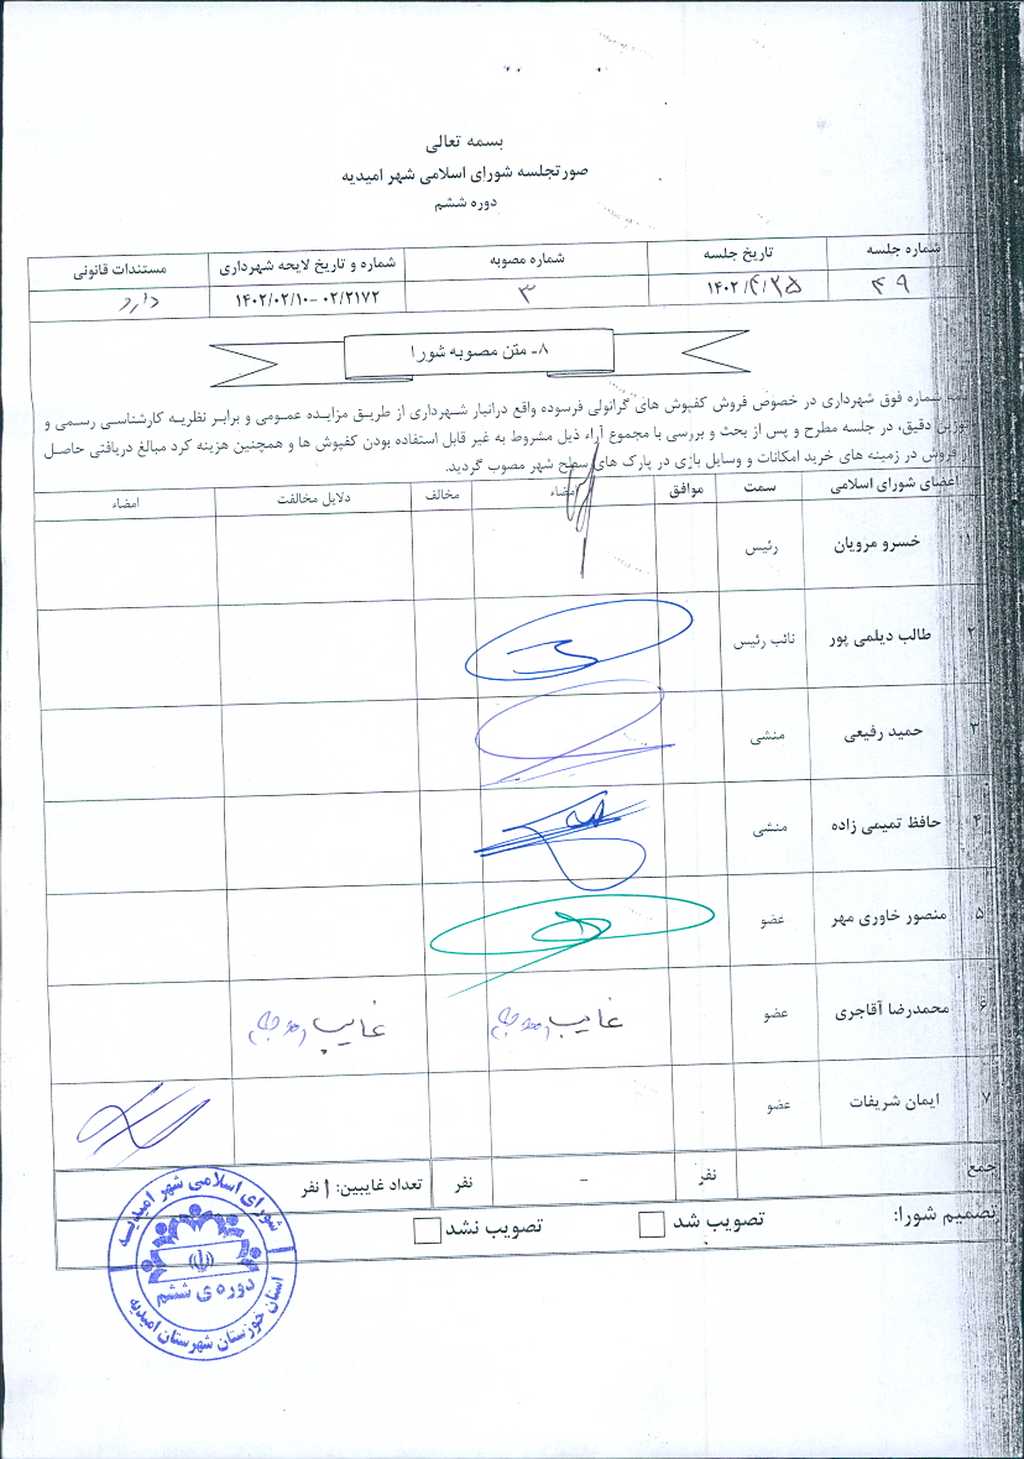 بسمه تعالی
صورتجلسه شورای اسلامی شهر امیدیه
دوره ششم
شماره جلسه تاریخ جلسه شماره مصوبه شماره و تاریخ لایحه شهرداری مستندات قانونی
۴۹ ۱۴۰۲/۴/۲۵ ۳ ۰۲/۲۱۷۲ -۱۴۰۲/۰۲/۱۰ دارد
۸- متن مصوبه شورا
شماره فوق شهرداری در خصوص فروش کفپوش های گرانولی فرسوده واقع درانبار شهرداری از طریق مزایده عمومی و برابر نظریه کارشناسی رسمی و
توزین دقیق، در جلسه مطرح و پس از بحث و بررسی با مجموع آراء ذیل مشروط به غیر قابل استفاده بودن کفپوش ها و همچنین هزینه کرد مبالغ دریافتی حاصل
از فروش در زمینه های خرید امکانات و وسایل بازی در پارک های سطح شهر مصوب گردید.
اعضای شورای اسلامی سمت موافق امضاء مخالف دلایل مخالفت امضاء
۱ خسرو مرویان رئیس
۲ طالب دیلمی پور نائب رئیس
۳ حمید رفیعی منشی
۴ حافظ تمیمی زاده منشی
۵ منصور خاوری مهر عضو
۶ محمدرضا آقاجری عضو غایب (موجه) غایب (موجه)
۷ ایمان شریفات عضو
جمع نفر - نفر تعداد غایبین: ۱ نفر
تصمیم شورا: تصویب شد تصویب نشد
شورای اسلامی شهر امیدیه
دوره ی ششم
استان خوزستان شهرستان امیدیه